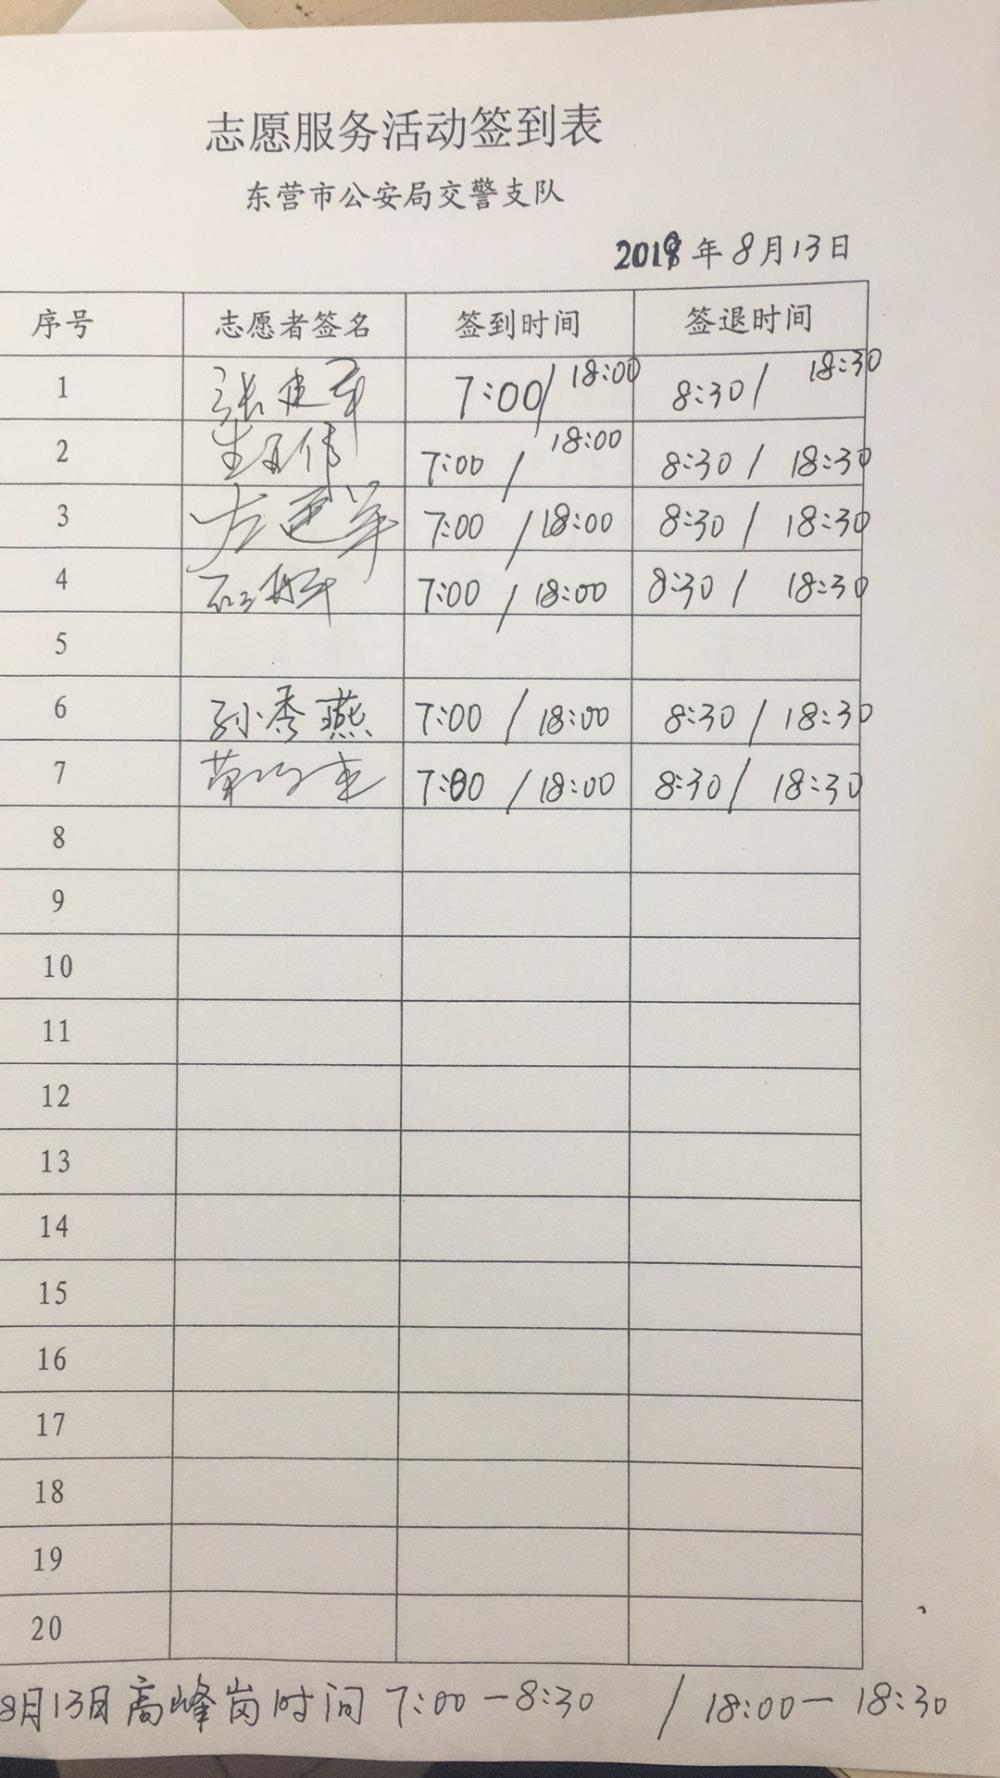 志愿服务活动签到表
东营市公安局交警支队
2018年8月13日
序号 志愿者签名 签到时间 签退时间
1 张建军 7:00/18:00 8:30/18:30
2 7:00/18:00 8:30/18:30
3 7:00/18:00 8:30/18:30
4 7:00/18:00 8:30/18:30
5
6 孙秀燕 7:00/18:00 8:30/18:30
7 7:00/18:00 8:30/18:30
8
9
10
11
12
13
14
15
16
17
18
19
20
8月13日高峰岗时间 7:00-8:30 / 18:00-18:30